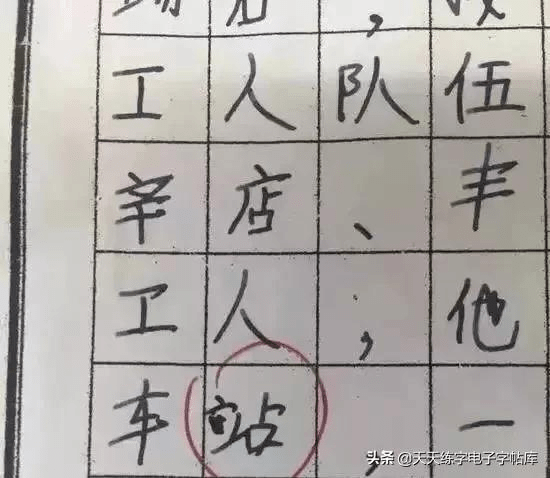 工人队伍
辛店、丰
工人,他
车站,一
头条 @天天练字电子字帖库